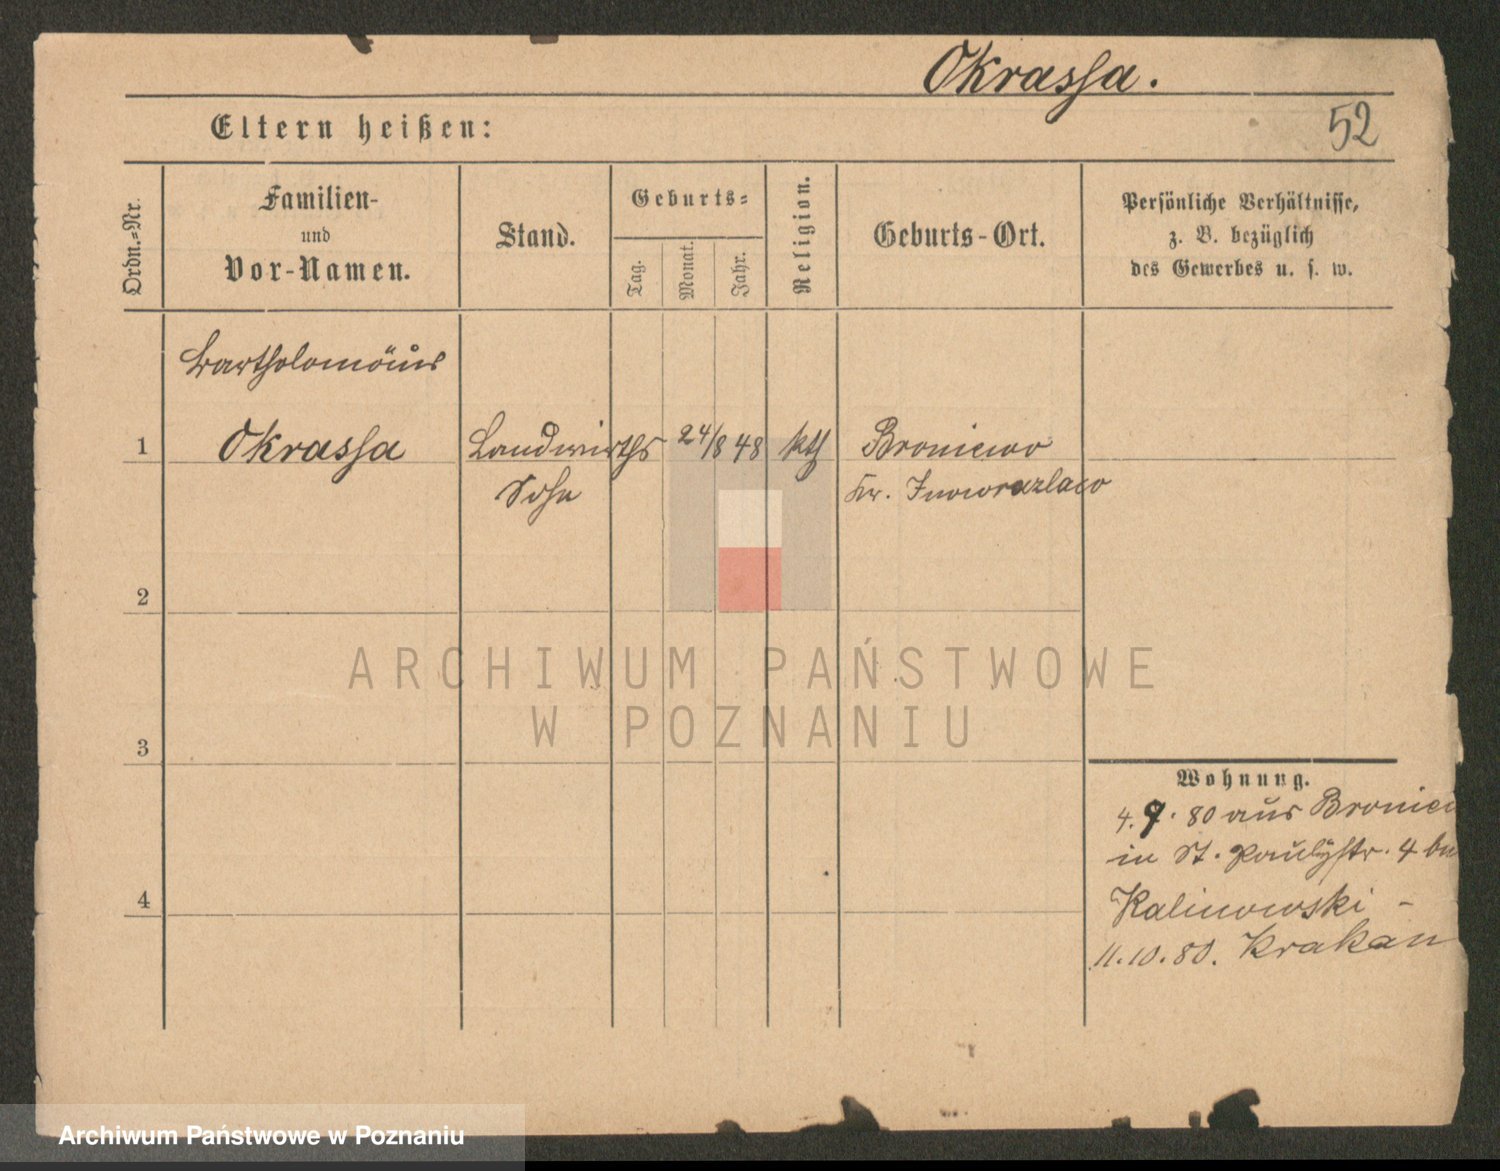 Okrassa.
Eltern heißen:
52
Ordn.-Nr.
Familien-
und
Vor-Namen.
Stand.
Geburts-
Tag.
Monat.
Jahr.
Religion.
Geburts-Ort.
Persönliche Verhältnisse,
z. B. bezüglich
des Gewerbes u. s. w.
Bartholomäus
1 Okrassa Landwirths 24/8 48 kth Broniewo
Sohn Kr. Inowrazlaw
2
ARCHIWUM PAŃSTWOWE
W POZNANIU
3
Wohnung.
4. 9. 80 aus Broniew
in St. Paulistr. 4 bei
4 Kalinowski -
11. 10. 80. Krakau
Archiwum Państwowe w Poznaniu